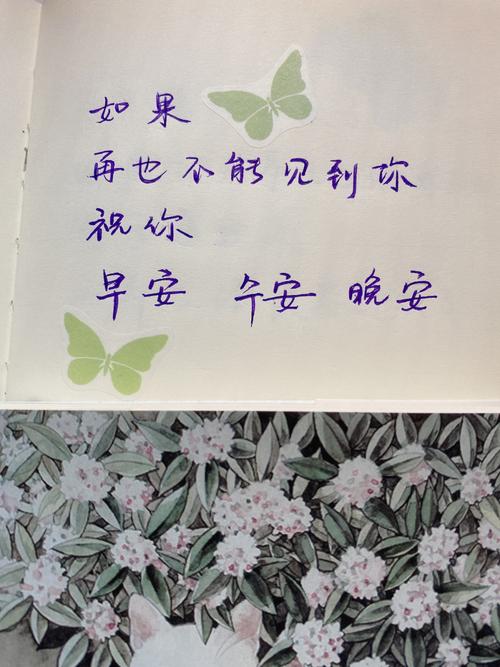 如果
再也不能见到你
祝你
早安 午安 晚安